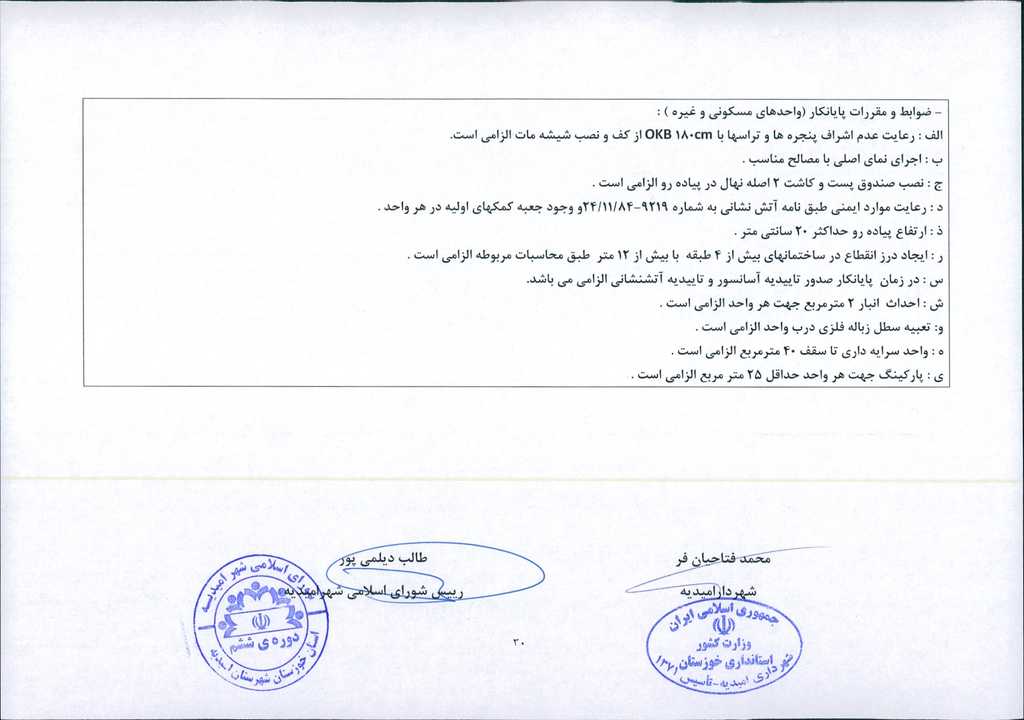 - ضوابط و مقررات پایانکار (واحدهای مسکونی و غیره ) :
الف : رعایت عدم اشراف پنجره ها و تراسها با OKB ۱۸۰cm از کف و نصب شیشه مات الزامی است.
ب : اجرای نمای اصلی با مصالح مناسب .
ج : نصب صندوق پست و کاشت ۲ اصله نهال در پیاده رو الزامی است .
د : رعایت موارد ایمنی طبق نامه آتش نشانی به شماره ۹۲۱۹-۲۴/۱۱/۸۴و وجود جعبه کمکهای اولیه در هر واحد .
ذ : ارتفاع پیاده رو حداکثر ۲۰ سانتی متر .
ر : ایجاد درز انقطاع در ساختمانهای بیش از ۴ طبقه با بیش از ۱۲ متر طبق محاسبات مربوطه الزامی است .
س : در زمان پایانکار صدور تاییدیه آسانسور و تاییدیه آتشنشانی الزامی می باشد.
ش : احداث انبار ۲ مترمربع جهت هر واحد الزامی است .
و: تعبیه سطل زباله فلزی درب واحد الزامی است .
ه : واحد سرایه داری تا سقف ۴۰ مترمربع الزامی است .
ی : پارکینگ جهت هر واحد حداقل ۲۵ متر مربع الزامی است .
محمد فتاحیان فر
شهردارامیدیه
طالب دیلمی پور
رییس شورای اسلامی شهرامیدیه
جمهوری اسلامی ایران
وزارت کشور
استانداری خوزستان
شهرداری امیدیه-تأسیس ۱۳۷۱
شورای اسلامی شهر امیدیه
دوره ی ششم
استان خوزستان شهرستان امیدیه
۳۰